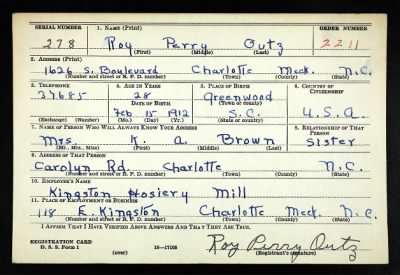 SERIAL NUMBER 1. NAME (Print) ORDER NUMBER
278 Roy Perry Outz 2211
(First) (Middle) (Last)
2. ADDRESS (Print)
1626 S. Boulevard Charlotte Meck. N.C.
(Number and street or R. F. D. number) (Town) (County) (State)
3. TELEPHONE 4. AGE IN YEARS 5. PLACE OF BIRTH 6. COUNTRY OF CITIZENSHIP
37685 28 Greenwood
DATE OF BIRTH (Town or county)
Feb 15 1912 S.C. U.S.A.
(Exchange) (Number) (Mo.) (Day) (Yr.) (State or country)
7. NAME OF PERSON WHO WILL ALWAYS KNOW YOUR ADDRESS 8. RELATIONSHIP OF THAT PERSON
Mrs. K. A. Brown Sister
(Mr., Mrs., Miss) (First) (Middle) (Last)
9. ADDRESS OF THAT PERSON
Carolyn Rd. Charlotte N.C.
(Number and street or R. F. D. number) (Town) (County) (State)
10. EMPLOYER'S NAME
Kingston Hosiery Mill
11. PLACE OF EMPLOYMENT OR BUSINESS
118 E. Kingston Charlotte Meck. N.C.
(Number and street or R. F. D. number) (Town) (County) (State)
I AFFIRM THAT I HAVE VERIFIED ABOVE ANSWERS AND THAT THEY ARE TRUE.
REGISTRATION CARD
D. S. S. Form 1 (over) 16—17105 Roy Perry Outz
(Registrant's signature)